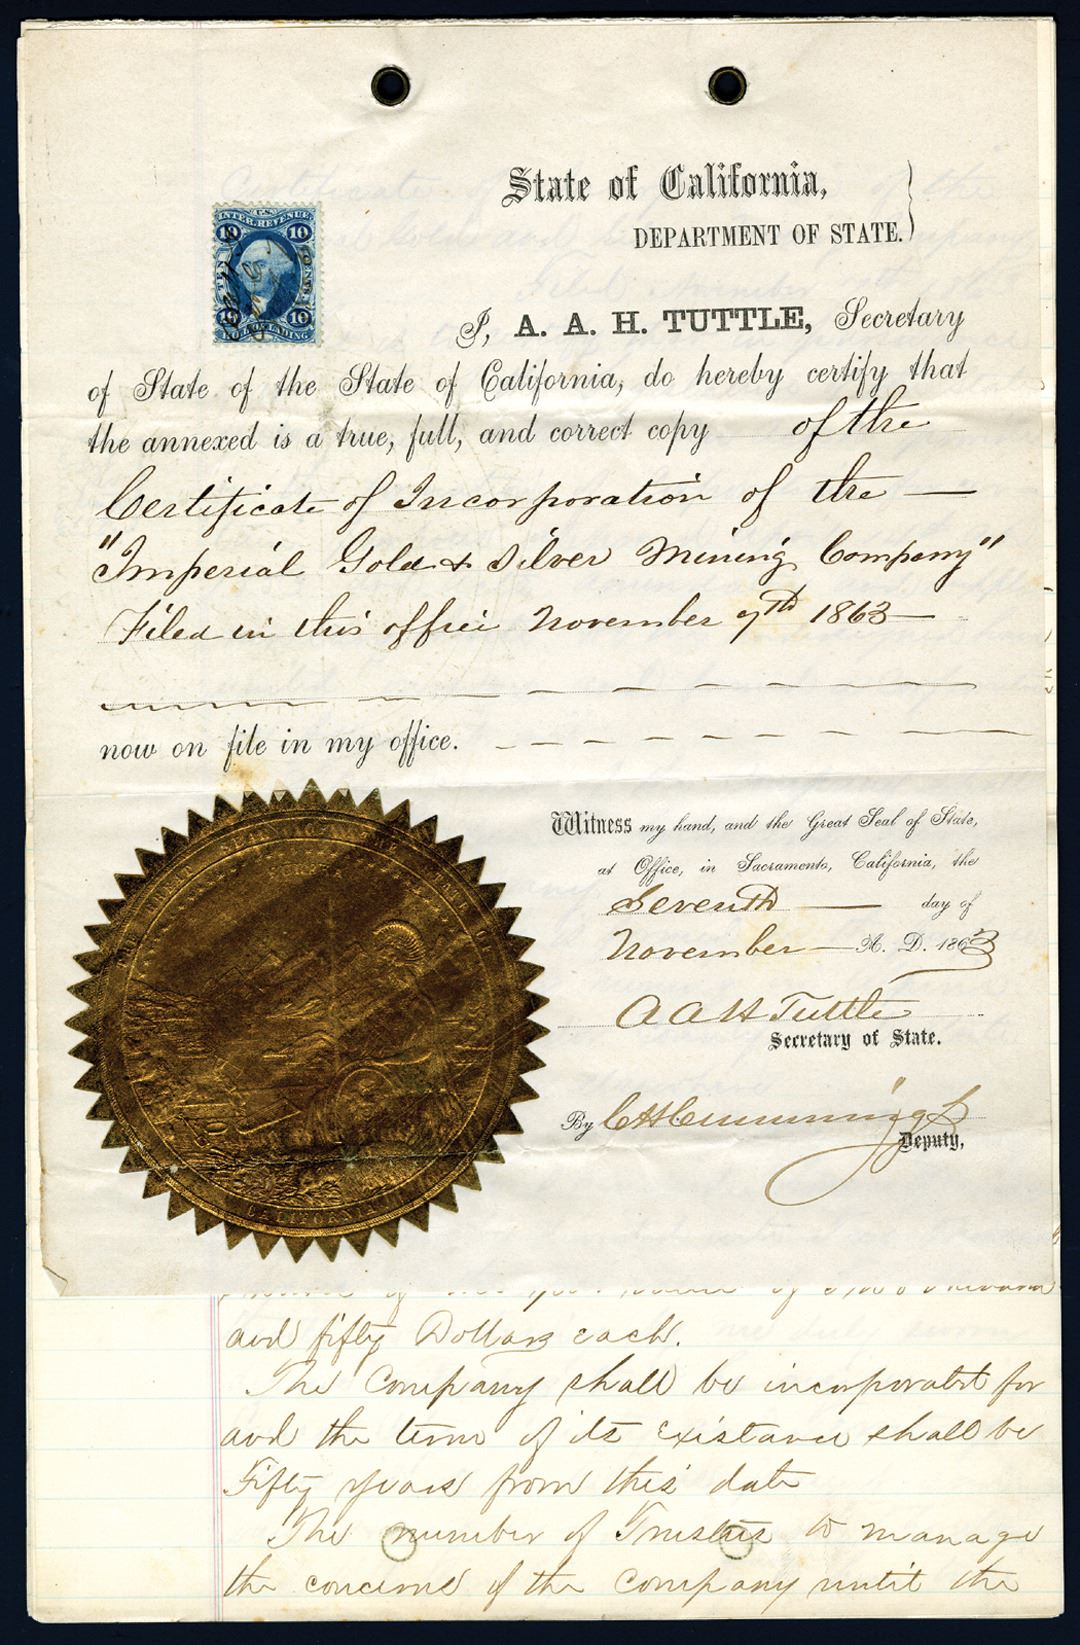 State of California,
DEPARTMENT OF STATE.
U.S.
INTER. REVENUE
10 10
10 10
BILL OF LADING
I, A. A. H. TUTTLE, Secretary
of State of the State of California, do hereby certify that
the annexed is a true, full, and correct copy of the
Certificate of Incorporation of the —
"Imperial Gold & Silver Mining Company"
Filed in this office November 7th 1863 —
now on file in my office.
Witness my hand, and the Great Seal of State,
at Office, in Sacramento, California, the
Seventh — day of
November — A. D. 1863
A A H Tuttle
Secretary of State.
By C H Cummings
Deputy,
THE GREAT SEAL OF THE STATE OF
CALIFORNIA
and fifty Dollars each.
The Company shall be incorporated for
and the term of its existance shall be
Fifty years from this date
The number of Trustees to manage
the concerns of the company until the